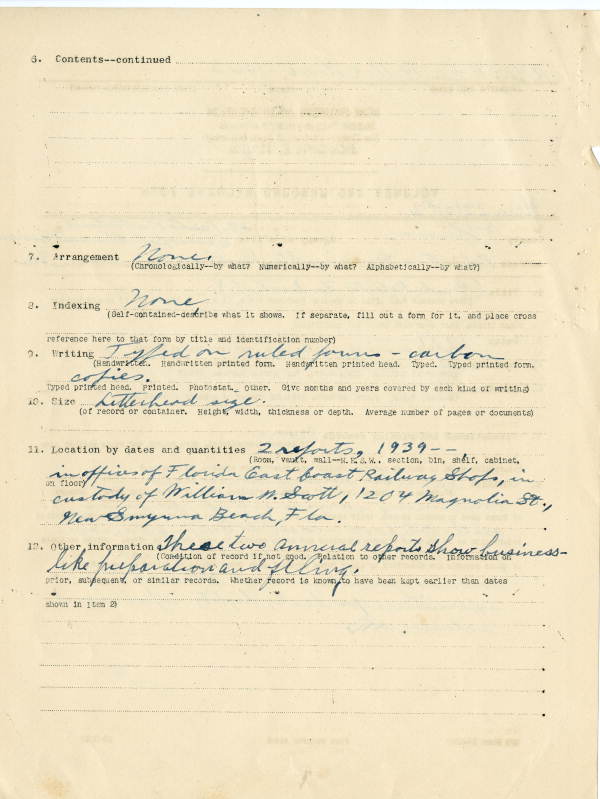 6. Contents--continued
7. Arrangement None.
(Chronologically--by what? Numerically--by what? Alphabetically--by what?)
8. Indexing None
(Self-contained-describe what it shows. If separate, fill out a form for it, and place cross
reference here to that form by title and identification number)
9. Writing Typed on ruled forms - carbon
(Handwritten. Handwritten printed form. Handwritten printed head. Typed. Typed printed form.
copies.
Typed printed head. Printed. Photostat. Other. Give months and years covered by each kind of writing)
10. Size Letterhead size.
(of record or container. Height, width, thickness or depth. Average number of pages or documents)
11. Location by dates and quantities 2 reports, 1939--
(Room, vault, wall--N.E.S.W., section, bin, shelf, cabinet,
in offices of Florida East Coast Railway Shops, in
on floor)
custody of William N. Scott, 1204 Magnolia St.,
New Smyrna Beach, Fla.
12. Other information These two annual reports show business-
(Condition of record if not good. Relation to other records. Information on
like preparation and filing.
prior, subsequent, or similar records. Whether record is known to have been kept earlier than dates
shown in item 2)